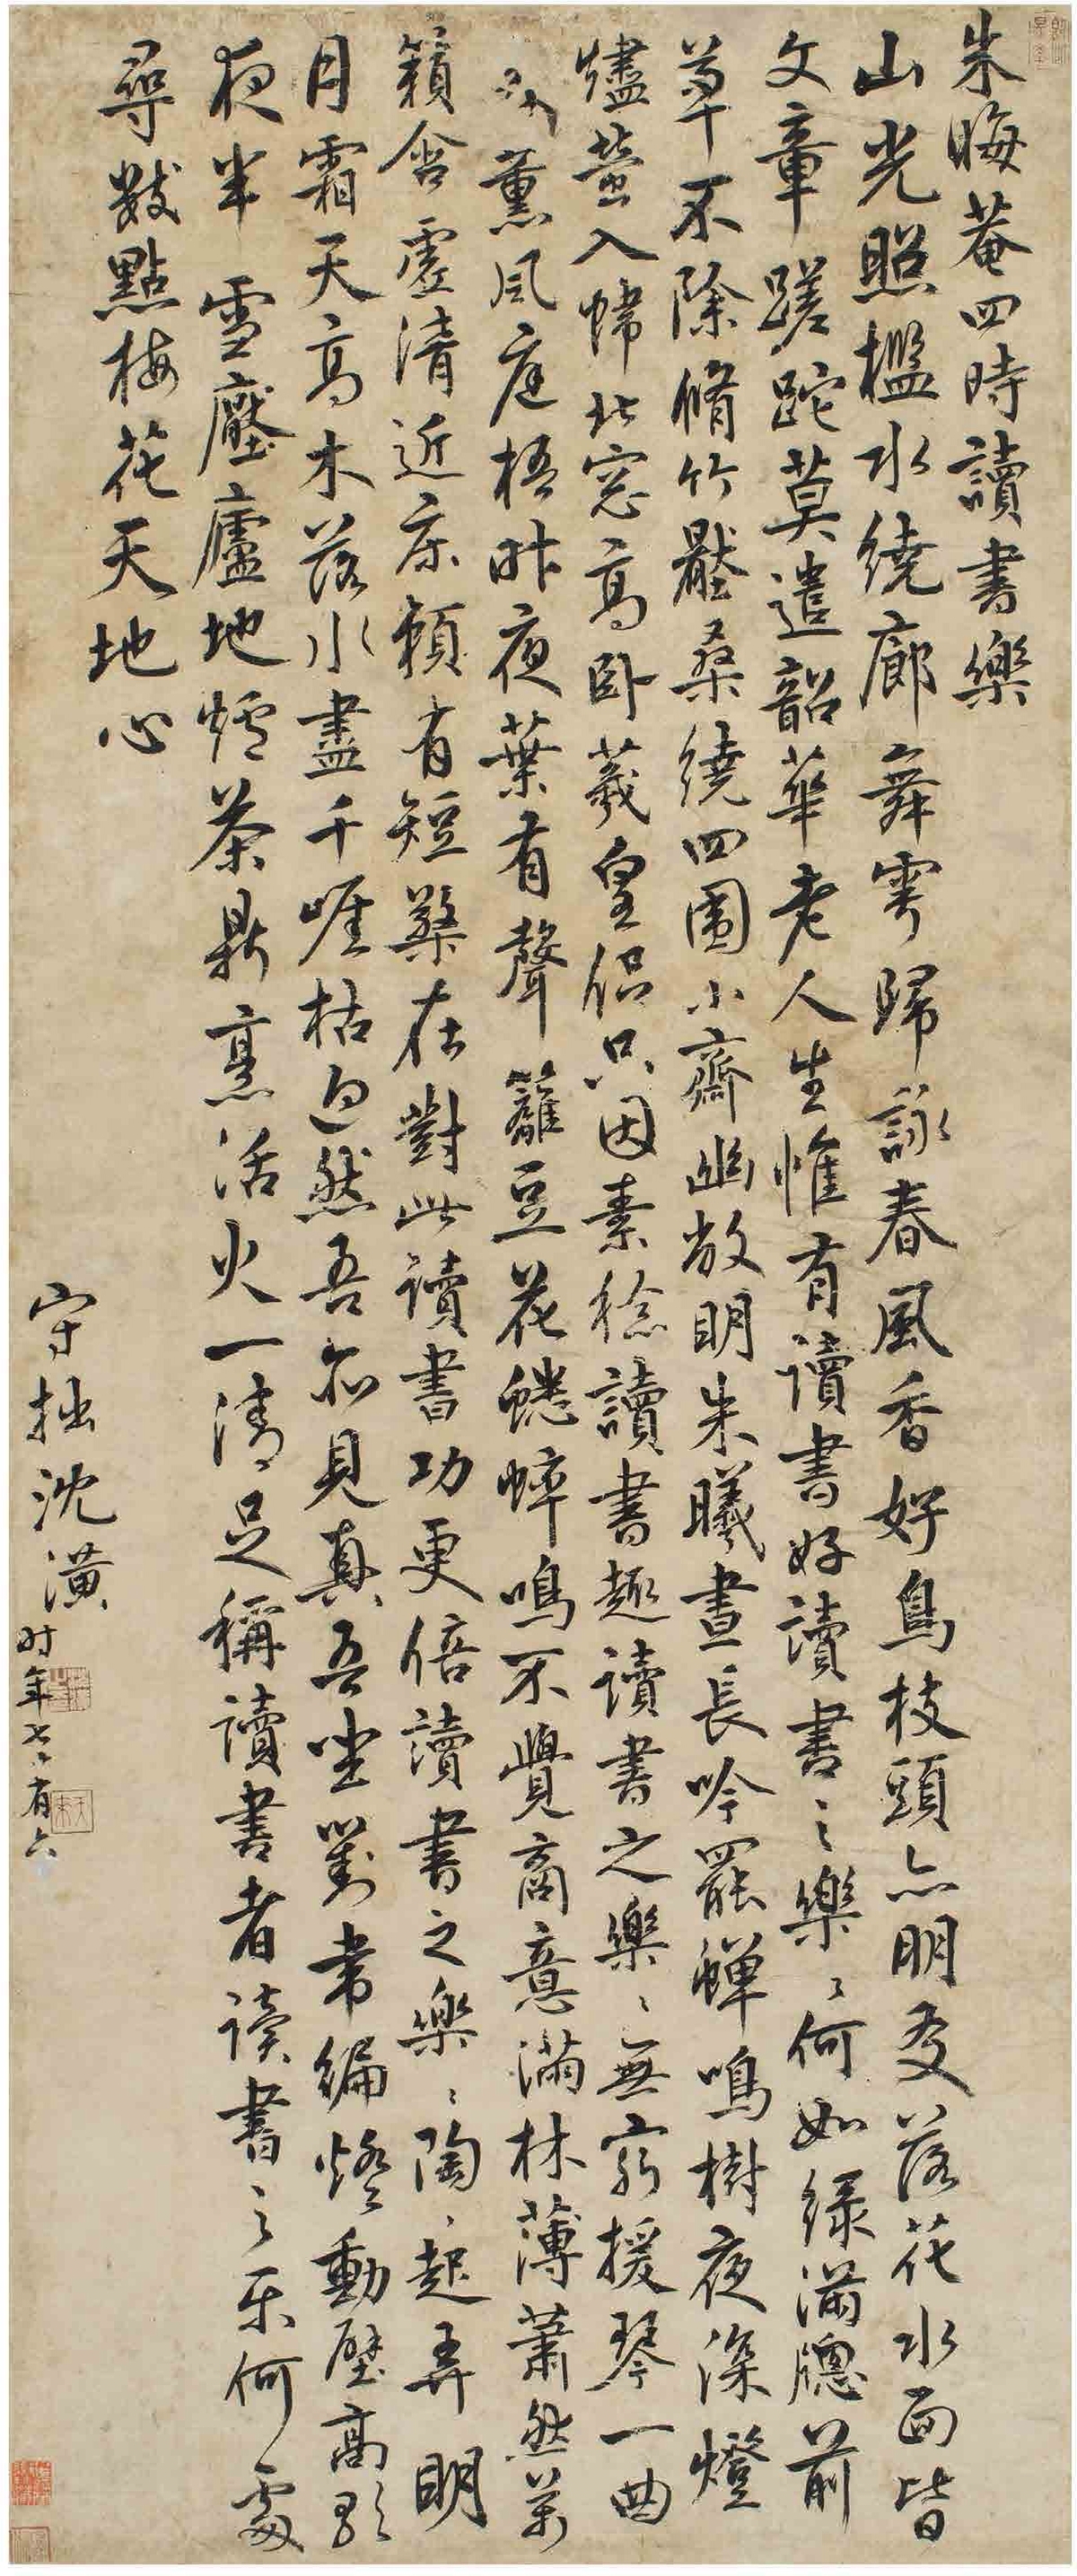 朱晦菴四時讀書樂
山光照檻水繞廊舞雩歸詠春風香好鳥枝頭亦朋友落花水面皆
文章蹉跎莫遣韶華老人生惟有讀書好讀書之樂〻何如綠滿牕前
草不除脩竹壓桑繞四圍小齋幽敞明朱曦晝長吟罷蟬鳴樹夜深燈
燼螢入幃北窓高臥羲皇侶只因素稔讀書趣讀書之樂〻無窮援琴一曲
來薰風庭梧昨夜葉有聲籬豆花蟋蟀鳴不覺商意滿林薄蕭然萬
籟含虛清近床賴有短檠在對此讀書功更倍讀書之樂〻陶〻起弄明
月霜天高木落水盡千崖枯迥然吾亦見真吾坐對韋編燈動壁高歌
夜半雪壓廬地爐茶鼎烹活火一清足稱讀書者读書之乐何處
尋數點梅花天地心
守拙沈潢
时年七〻有六